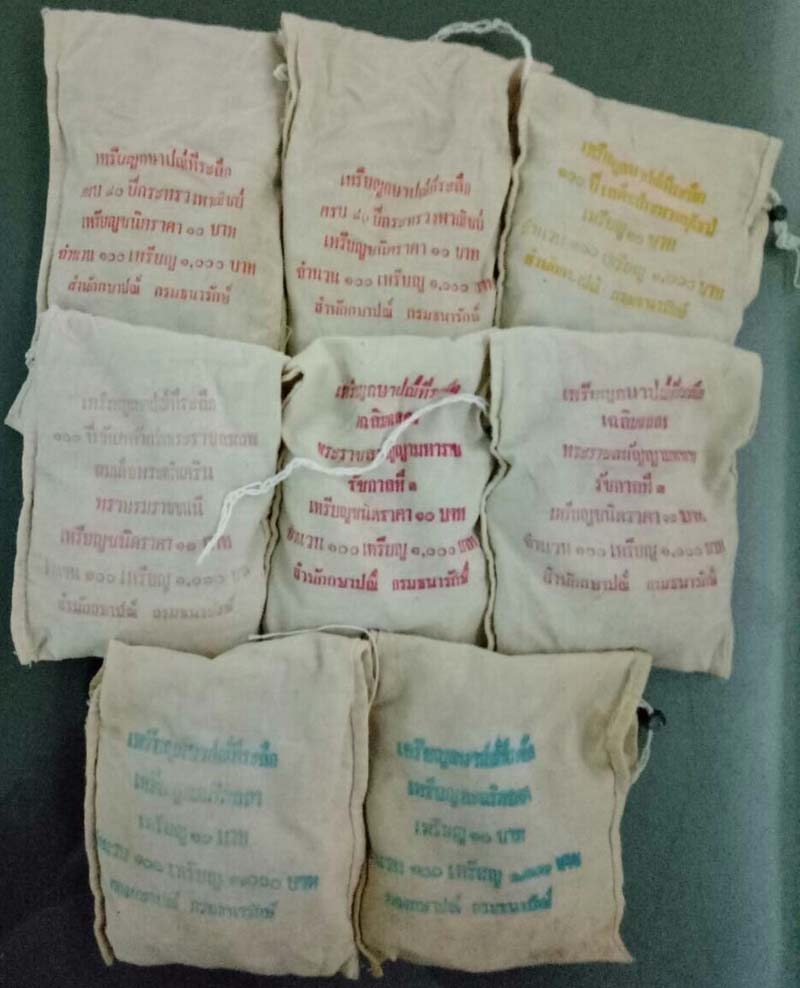 เหรียญกษาปณ์ที่ระลึก
ครบ ๘๐ ปีกระทรวงพาณิชย์
เหรียญชนิดราคา ๑๐ บาท
จำนวน ๑๐๐ เหรียญ ๑,๐๐๐ บาท
สำนักกษาปณ์ กรมธนารักษ์
เหรียญกษาปณ์ที่ระลึก
ครบ ๘๐ ปีกระทรวงพาณิชย์
เหรียญชนิดราคา ๑๐ บาท
จำนวน ๑๐๐ เหรียญ ๑,๐๐๐ บาท
สำนักกษาปณ์ กรมธนารักษ์
เหรียญกษาปณ์ที่ระลึก
๑๐๐ ปี
เหรียญ ๑๐ บาท
จำนวน ๑๐๐ เหรียญ ๑,๐๐๐ บาท
สำนักกษาปณ์ กรมธนารักษ์
เหรียญกษาปณ์ที่ระลึก
๑๐๐ ปีวันคล้ายวันพระราชสมภพ
สมเด็จพระศรีนครินทราบรมราชชนนี
เหรียญชนิดราคา ๑๐ บาท
จำนวน ๑๐๐ เหรียญ ๑,๐๐๐ บาท
สำนักกษาปณ์ กรมธนารักษ์
เหรียญกษาปณ์ที่ระลึก
เฉลิมฉลอง
พระราชสมัญญามหาราช
รัชกาลที่ ๓
เหรียญชนิดราคา ๑๐ บาท
จำนวน ๑๐๐ เหรียญ ๑,๐๐๐ บาท
สำนักกษาปณ์ กรมธนารักษ์
เหรียญกษาปณ์ที่ระลึก
เฉลิมฉลอง
พระราชสมัญญามหาราช
รัชกาลที่ ๓
เหรียญชนิดราคา ๑๐ บาท
จำนวน ๑๐๐ เหรียญ ๑,๐๐๐ บาท
สำนักกษาปณ์ กรมธนารักษ์
เหรียญกษาปณ์ที่ระลึก
เหรียญ ๑๐ บาท
จำนวน ๑๐๐ เหรียญ ๑,๐๐๐ บาท
กองกษาปณ์ กรมธนารักษ์
เหรียญกษาปณ์ที่ระลึก
เหรียญ ๑๐ บาท
จำนวน ๑๐๐ เหรียญ ๑,๐๐๐ บาท
กองกษาปณ์ กรมธนารักษ์